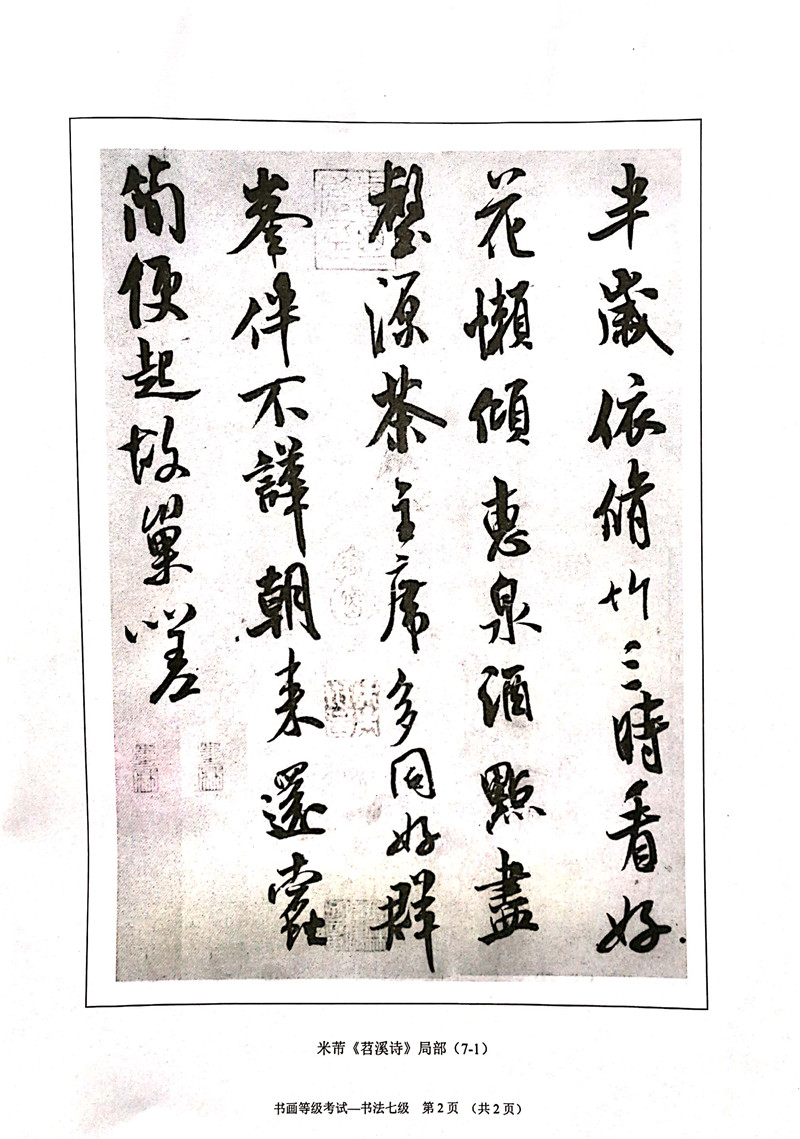 半歲依脩竹三時看好
花懶傾惠泉酒點盡
壑源茶主席多同好群
峯伴不譁朝来還蠹
簡便起故巢嗟
米芾《苕溪诗》局部（7-1）
书画等级考试—书法七级 第2页 （共2页）